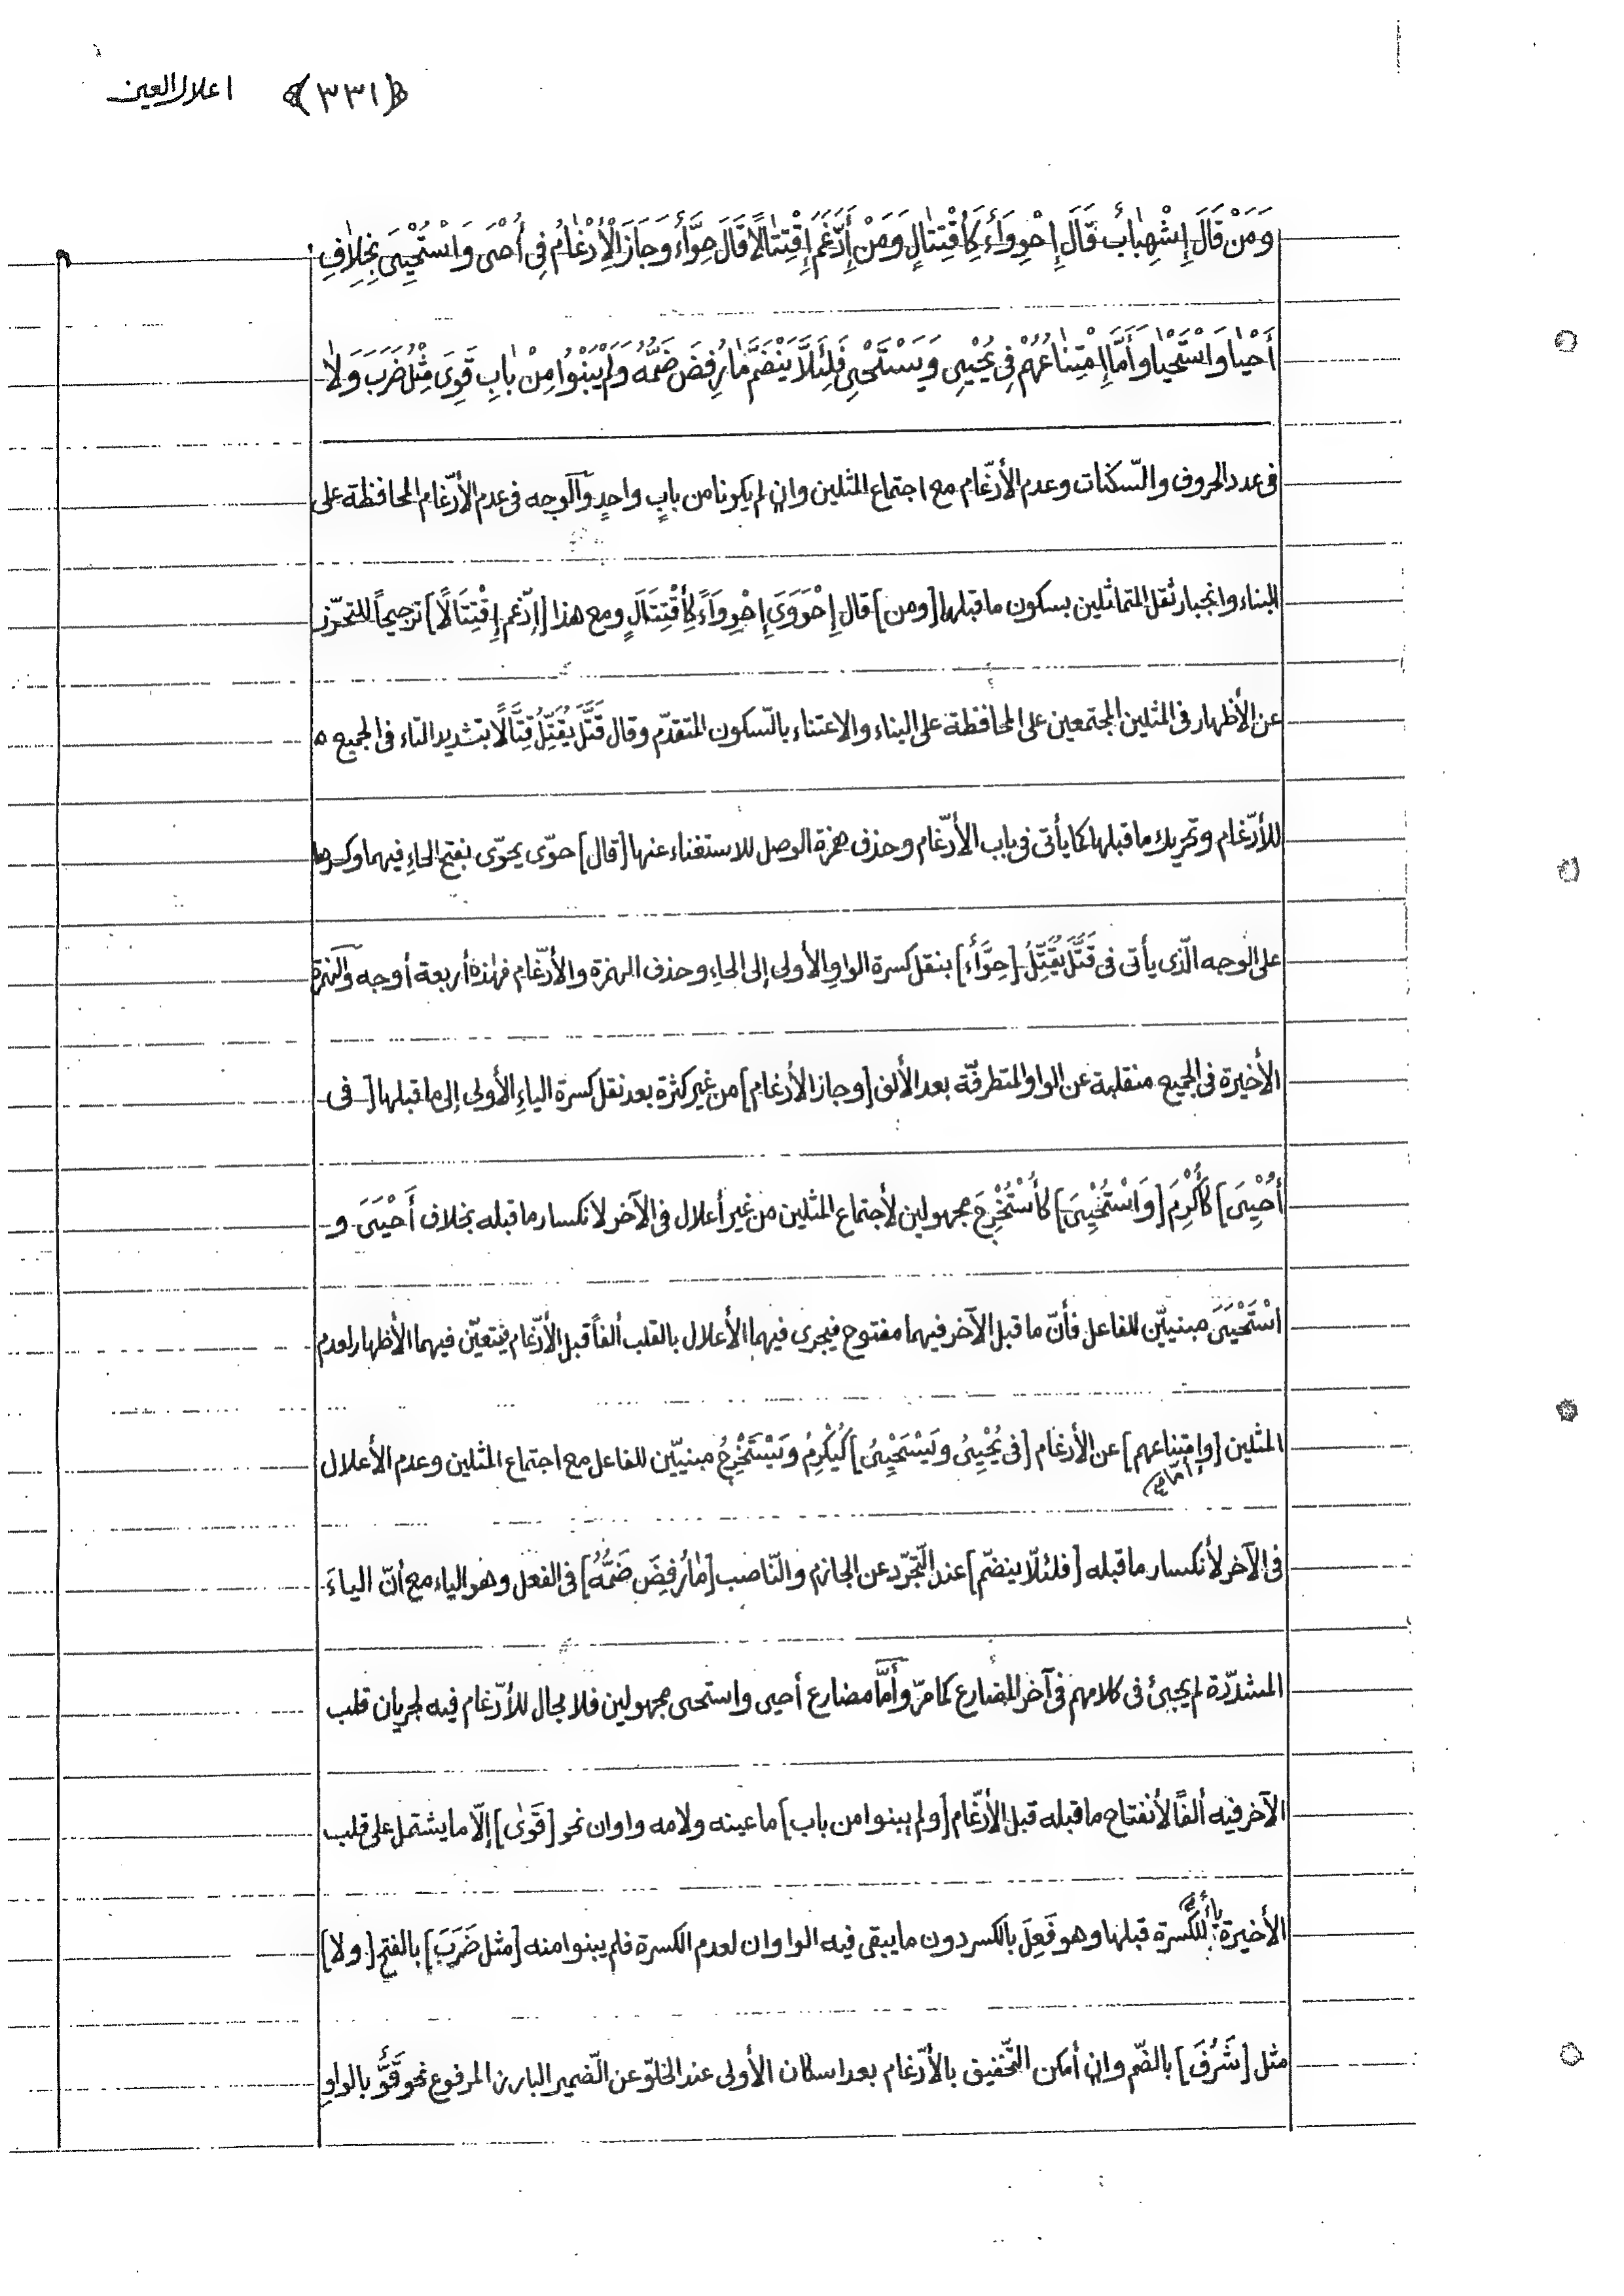 اعلال العين ﴿٣٣١﴾
وَمَنْ قَالَ إِشْهِبَابٌ قَالَ إِحْوِوَاءٌ كَأِقْتِتَالٍ وَمَنْ أَدْغَمَ إِقْتِتَالًا قَالَ حِوَّاءٌ وَجَازَ الْأِدْغَامُ فِى أُحْيِىَ وَاسْتُحْيِىَ بِخِلَافِ
أَحْيَا وَاسْتَحْيَا وَأَمَّا إِمْتِنَاعُهُمْ فِى يُحْيِى وَيَسْتَحْيِى فَلِئَلَّا يَنْضَمَّ مَا رُفِضَ ضَمُّهُ وَلَمْ يَبْنُوا مِنْ بَابِ قَوِىَ مِثْلُ ضَرَبَ وَلَا
فى عدد الحروف والسّكنات وعدم الأدّغام مع اجتماع المثلين وان لم يكونا من بابٍ واحدٍ وآلوجه فى عدم الأدّغام المحافظة على
البناء وانجبار ثقل المتماثلين بسكون ما قبلها [ومن] قال إِحْوَوَى إِحْوِوَاءً كَأِقْتِتَالٍ ومع هذا [إدّغم إِقْتِتَالًا] ترجيحاً للتحرّز
عن الأظهار فى المثلين المجتمعين على المحافظة على البناء والاعتناء بالسّكون المتقدّم وقال قَتَّلَ يُقَتِّلُ قِتَّالًا بتشديد التّاء فى الجميع ه
للأدّغام وتحريك ما قبلها كما يأتى فى باب الأدّغام وحذف همزة الوصل للاستغناء عنها [قال] حوّى يحوّى بفتح الحاءِ فيهما وكسرها
على الوجه الّذى يأتى فى قَتَّلَ يُقَتِّلُ [حِوَّاءٌ] بنقل كسرة الواوِ الأولى إلى الحاءِ وحذف الهمزة والأدّغام فهذه أربعة أوجه وآلهمزة
الأخيرة فى الجميع منقلبة عن الواو المتطرفّة بعد الألف [وجاز الأدغام] من غير كثرة بعد نقل كسرة الياءِ الأولى إلى ما قبلها [فى
أُحْيِىَ] كَأُكْرِمَ [وَاسْتُحْيِىَ] كأُسْتُخْرِجَ مجهولين لأجتماع المثلين من غير أعلال فى الآخر لانكسار ما قبله بخلاف أَحْيَىَ و
اسْتَحْيَىَ مبنيّين للفاعل فأنّ ما قبل الآخر فيهما مفتوح فيجرى فيهما الأعلال بالقلب ألفاً قبل الأدّغام فيتعيّن فيهما الأظهار لعدم
المثلين [وإمتناعهم] عن الأدغام [فى يُحْيِىُ ويَسْتَحْيِىُ] كيُكْرِمُ ويَسْتَخْرِجُ مبنيّين للفاعل مع اجتماع المثلين وعدم الأعلال
أمّا
فى الآخر لأنكسار ما قبله [فلئلّا ينضمّ] عند التّجرّد عن الجازم والنّاصب [مَا رُفِضَ ضَمُّهُ] فى الفعل وهو الياء مع أنّ الياءَ
المشدّدة لم يجئ فى كلامهم فى آخر المضارع كما مرّ وأمّا مضارع أحيى واستحى مجهولين فلا مجال للأدّغام فيه لجريان قلب
الآخر فيه ألفاً لأنفتاح ما قبله قبل الأدّغام [ولم يبنوا من باب] ما عينه ولامه واوان نحو [قَوَىٰ] إلّا ما يشتمل على قلب
الأخيرة للكسرة قبلها وهو فَعِلَ بالكسر دون ما يبقى فيه الواوان لعدم الكسرة فلم يبنوا منه [مثل ضَرَبَ] بالفتح [ولا]
مثل [شَرُفَ] بالضّم وان أمكن التّخفيف بالأدّغام بعد اسكان الأولى عند الخلوّ عن الضّمير البارز المرفوع نحو قَوَّ بالواوِ